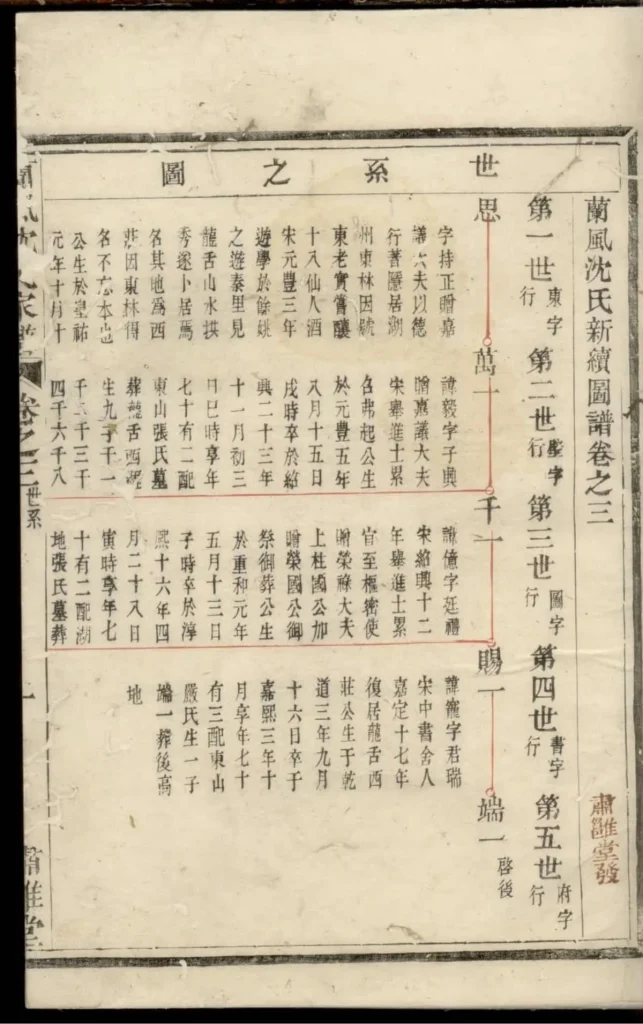 世系之圖
蘭風沈氏新續圖譜卷之三
肅雝堂發
第一世
東字行
第二世
聖字行
第三世
圖字行
第四世
書字行
第五世
府字行
思
字持正贈嘉
議大夫以德
行著隱居湖
州東林因號
東老實嘗釀
十八仙人酒
宋元豐三年
遊學於餘姚
之遊秦里見
龍舌山水拱
秀遂卜居焉
名其地為西
莊因東林得
名不忘本也
公生於皇祐
元年十月十
萬一
諱毅字子與
贈嘉議大夫
宋舉進士累
召弗起公生
於元豐五年
八月十五日
戌時卒於紹
興二十三年
十一月初三
日巳時享年
七十有二配
東山張氏墓
葬龍舌西
生九子千一
千二千三千
四千六千八
千一
諱億字廷禮
宋紹興十二
年舉進士累
官至樞密使
贈榮祿大夫
上柱國公加
贈榮國公御
祭御葬公生
於重和元年
五月十三日
子時卒於淳
熙十六年四
月二十八日
寅時享年七
十有二配湖
地張氏墓葬
賜一
諱寵字君瑞
宋中書舍人
嘉定十七年
復居龍舌西
莊公生于乾
道三年九月
十六日卒于
嘉熙三年十
月享年七十
有三配東山
嚴氏生一子
端一葬後高
地
端一
啓後
卷之三
世系
一
肅雝堂